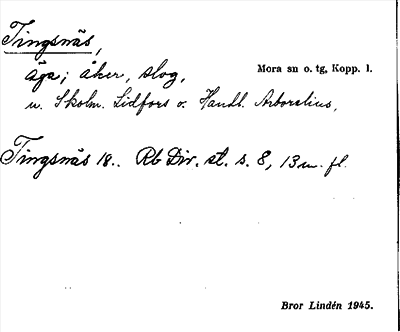 Tingsnäs,
äga; åker, slog, Mora sn o. tg, Kopp. l.
u. Skolm. Lidfors o. Handl. Arborelius,
Tingsnäs 18.. Rb Div. st. s. 8, 13 m. fl.
Bror Lindén 1945.